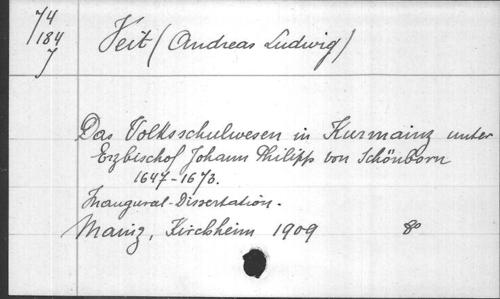 74
184
7
Veit (Andreas Ludwig)
Das Volksschulwesen in Kurmainz unter
Erzbischof Johann Philipp von Schönborn
1647-1673.
Inaugural-Dissertation.
Mainz, Kirchheim 1909 8°